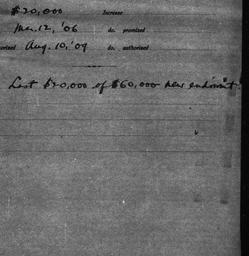 $20,000 Increase
Mar. 12, '06 do. promised
orized Aug. 10, '09 do. authorized
Last $20,000 of $60,000 new endowm't